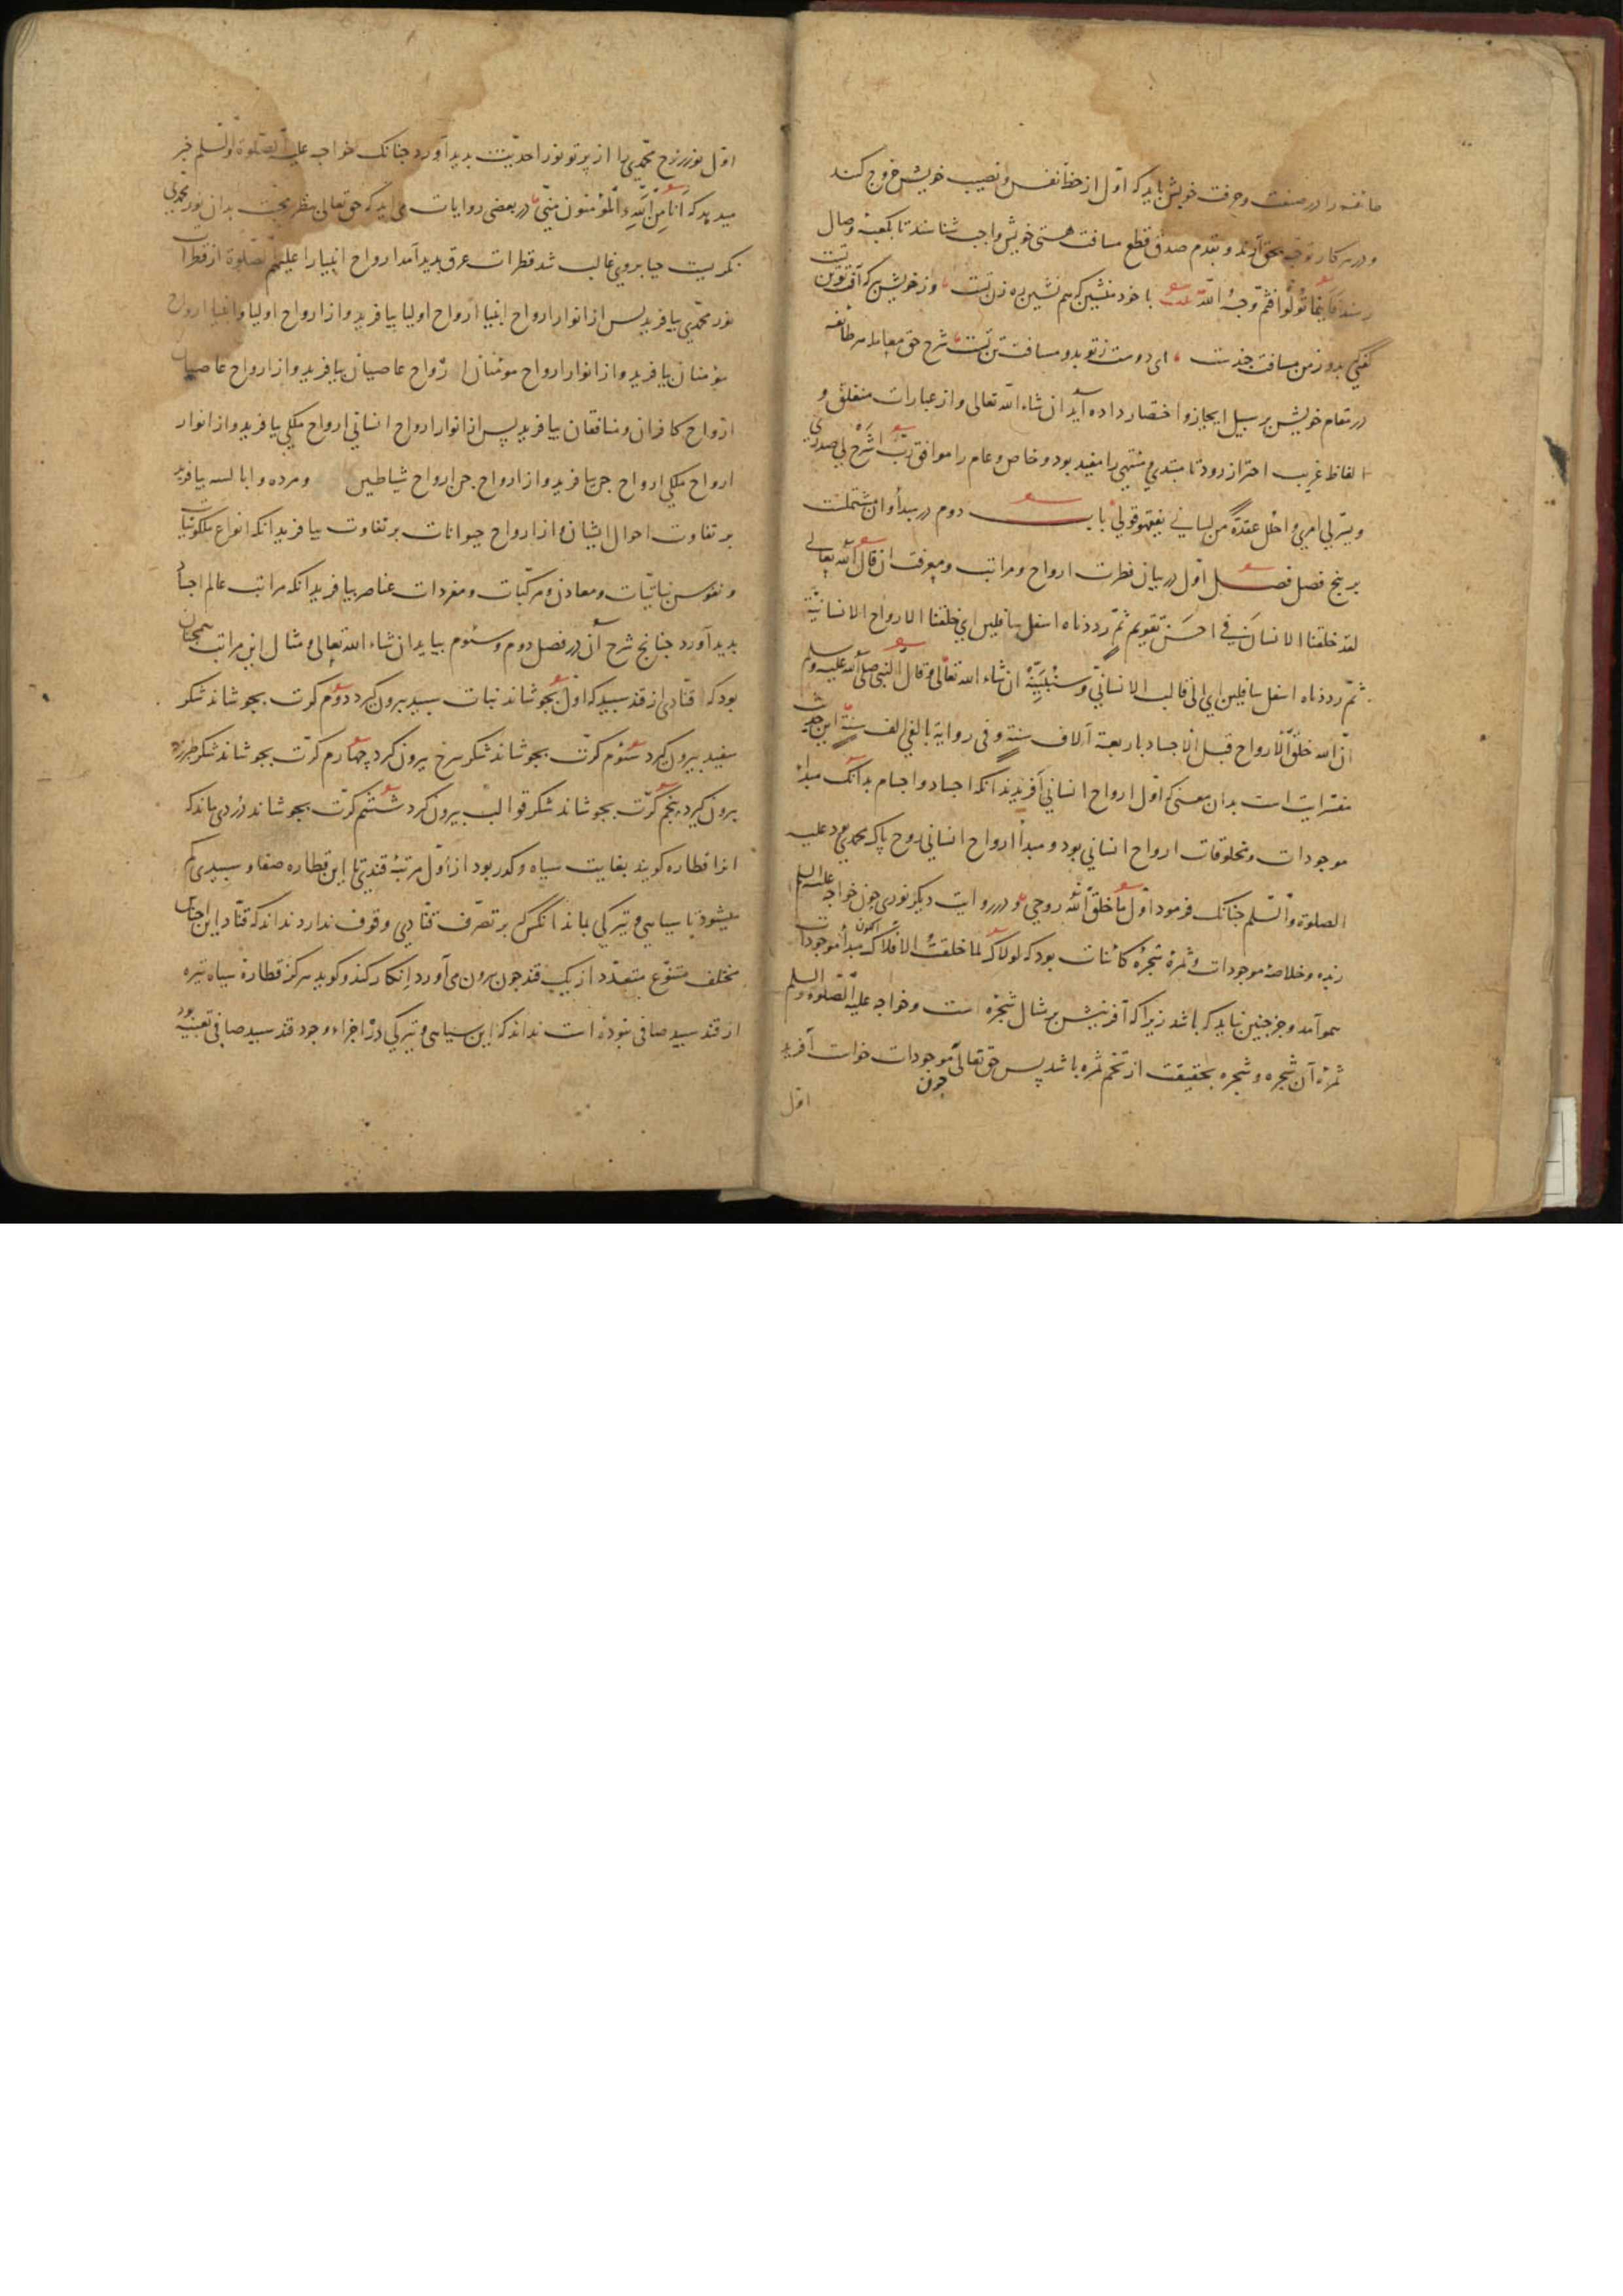 طائفه را در صنعت و حرفت خویش باید که اول از حظ نفس و نصیب خویش خروج کنند
و در هر کار توجه بحق آرند و بقدم صدق قطع مسافت هستی خویش واجب شناسند تا بکعبه وصال
رسند فاینما تولوا فثم وجه الله بیت با خود منشین که هم نشین ره زن تست وز خویش ببر که آفت تو تن تست
گفتی که بدو ز من مسافت چندست ای دوست ز تو بدو مسافت تن تست شرح حق معامله هر طائفه
در مقام خویش بر سبیل ایجاز و اختصار داده آید ان شاء الله تعالی و از عبارات منغلق و
الفاظ غریب احتراز رود تا مبتدی و منتهی را مفید بود و خاص و عام را موافق رب اشرح لی صدری
ویسرلی امری واحلل عقدة من لسانی یفقهوا قولی باب دوم در مبدأ و ان مشتملست
بر پنج فصل فصل اول در بیان فطرت ارواح و مراتب و معرفت ان قال الله تعالی
لقد خلقنا الانسان فی احسن تقویم ثم رددناه اسفل سافلین ای خلقنا الارواح الانسانیة
ثم رددناه اسفل سافلین ای الی قالب الانسانی وسنبینه ان شاء الله تعالی وقال النبی صلی الله علیه وسلم
ان الله خلق الارواح قبل الاجساد باربعة آلاف سنة وفی روایة بالفی الف سنة این حدیث
مفسر ایت است بدان معنی که اول ارواح انسانی آفریدند انکه اجساد و اجسام بدانک مبداء
موجودات و مخلوقات ارواح انسانی بود و مبدأ ارواح انسانی روح پاک محمدی بود علیه
الصلوة والسلم جنانک فرمود اول ما خلق الله روحی و در روایت دیکر نوری چون خواجه علیه السلم
زبده و خلاصه موجودات و ثمره شجره کائنات بود که لولاک لما خلقت الافلاک مبدأ موجودات
هموآمد و جز جنین نباید که باشد زیرا که آفرینش بر مثال شجره است و خواجه علیه الصلوة والسلم
ثمره آن شجره و شجره بحقیقت از تخم ثمره باشد پس حق تعالی چون موجودات خواست آفرید
اول
اول نور روح محمدی را از پرتو نور احدیت بدید آورد جنانک خواجه علیه الصلوة والسلم خبر
میدهد که انا من الله والمؤمنون منی در بعضی روایات می اید که حق تعالی بنظر محبت بدان نور محمدی
نکریست حیا بر وی غالب شد قطرات عرق بدید آمد ارواح انبیا را علیهم الصلوة از قطرات
نور محمدی بیافرید پس از انوار ارواح انبیا ارواح اولیا بیافرید و از ارواح اولیا و انبیا ارواح
مؤمنان بیافرید و از انوار ارواح مومنان ارواح عاصیان بیافرید و از ارواح عاصیان
ارواح کافران و منافقان بیافرید پس از انوار ارواح انسانی ارواح ملکی بیافرید و از انوار
ارواح ملکی ارواح جن بیافرید و از ارواح جن ارواح شیاطین ومرده و ابالسه بیافرید
بر تفاوت احوال ایشان و از ارواح حیوانات بر تفاوت بیافرید انکه انواع ملکوتیات
و نفوس نباتیات و معادن و مرکبات و مفردات عناصر بیافرید انکه مراتب عالم اجسام
بدید آورد جنانج شرح آن در فصل دوم و سئوم بیاید ان شاء الله تعالی و مثال این مراتب همچنان
بود که قنادی از قند سبید که اول بجوشاند نبات سبید بیرون گیرد دوم کرت بجوشاند شکر
سفید بیرون گیرد سئوم کرت بجوشاند شکر سرخ بیرون گیرد چهارم کرت بجوشاند شکر طبرزه
بیرون گیرد پنجم کرت بجوشاند شکر قوالب بیرون گیرد ششم کرت بجوشاند دردی ماند که
انرا قطاره کویند بغایت سیاه و کدر بود از اول مرتبه قندی تا این قطاره صفا و سبیدی کم
میشود تا سیاهی و تیرکی بماند انکس که بر تصرف قنادی وقوف ندارد نداند که قناد این اجناس
مختلف متنوع متعدد از یک قند جون بیرون می آورد انکار کند و کوید هرکز قطاره سیاه تیره
از قند سبید صافی نبوده است نداند که این سیاهی و تیرکی در اجزاء وجود قند سبید صافی تعبیه بود